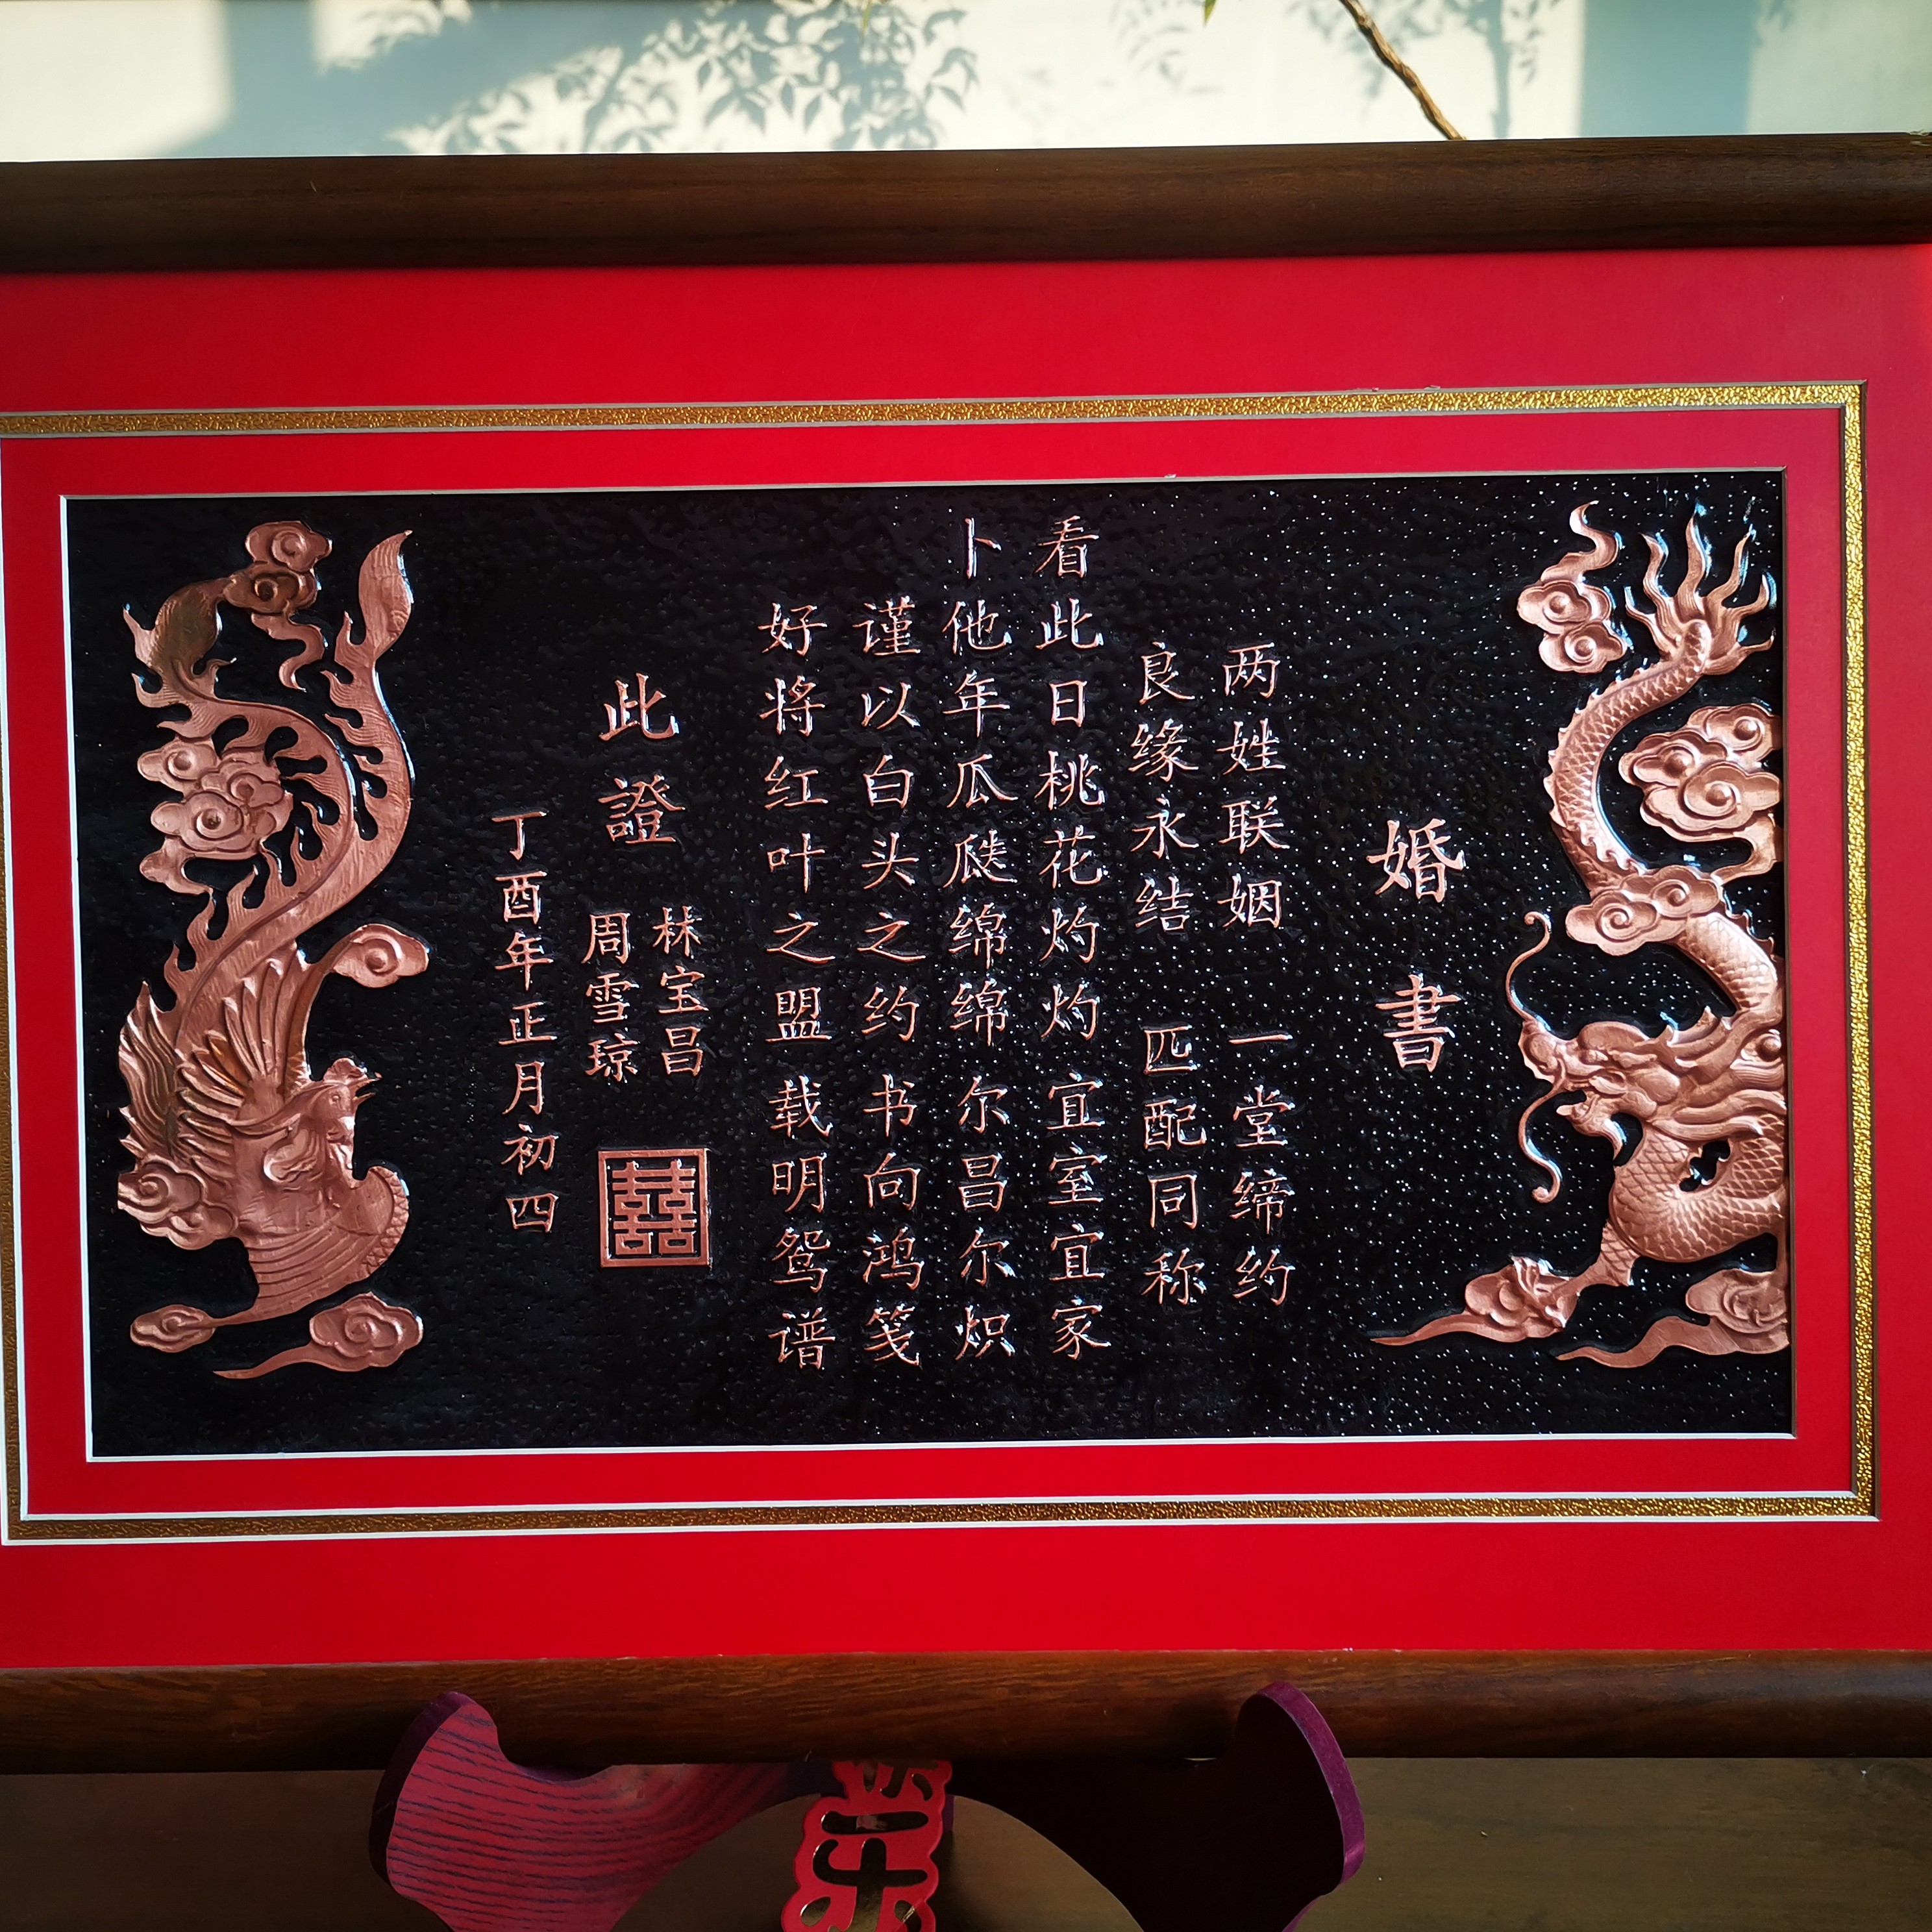 婚書
两姓联姻 一堂缔约
良缘永结 匹配同称
看此日桃花灼灼 宜室宜家
卜他年瓜瓞绵绵 尔昌尔炽
谨以白头之约 书向鸿笺
好将红叶之盟 载明鸳谱
此證
林宝昌
周雪琼
囍
丁酉年正月初四